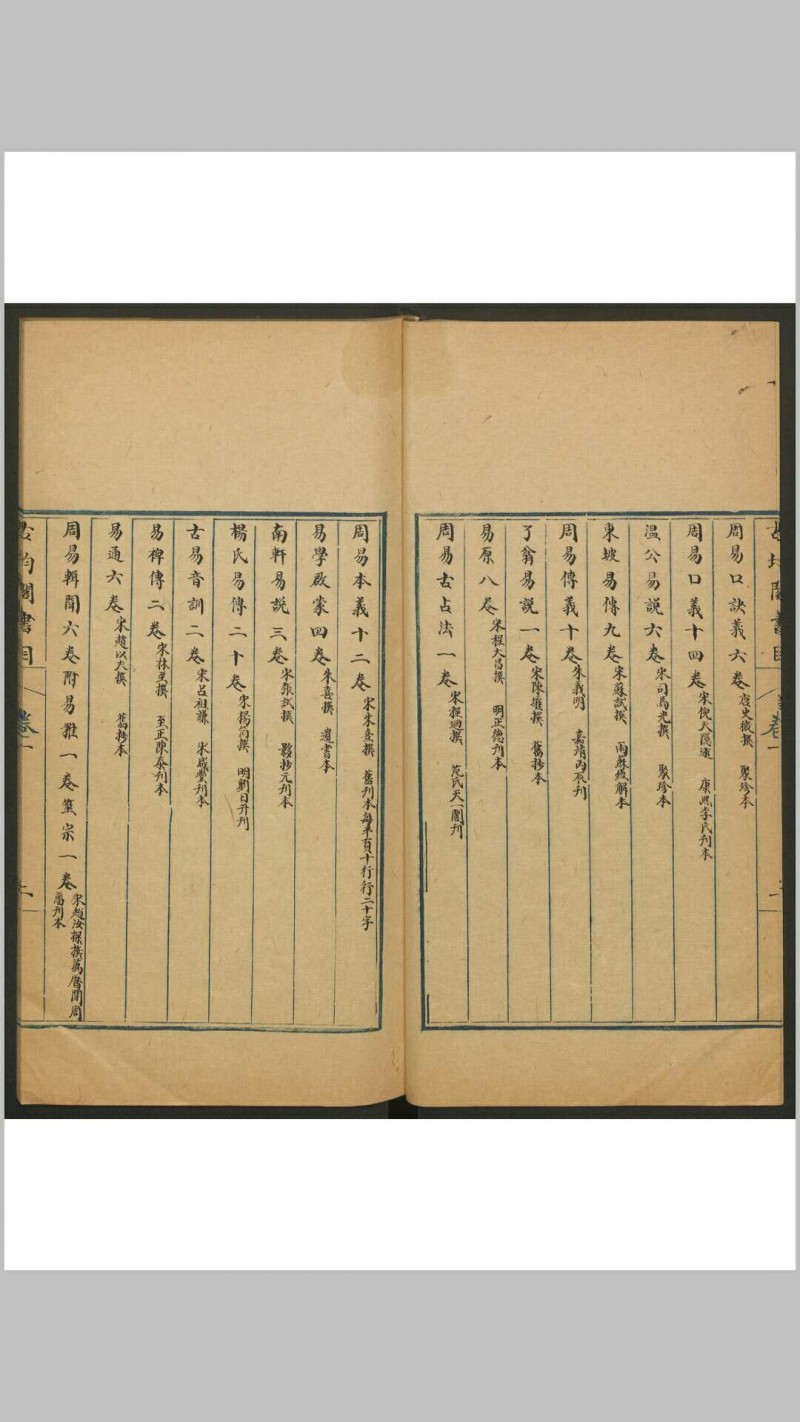 周易口訣義六卷 唐史徵撰 聚珍本
周易口義十四卷 宋倪天隱述 康熙李氏刊本
温公易説六卷 宋司馬光撰 聚珍本
東坡易傳九卷 宋蘇軾撰 兩蘇經解本
周易傳義十卷 朱義明 嘉靖丙辰刊
了翁易説一卷 宋陳瓘撰 舊抄本
易原八卷 宋程大昌撰 明正德刊本
周易古占法一卷 宋程迥撰 范氏天一閣刊
周易本義十二卷 宋朱熹撰 舊刊本每半頁十行行二十字
易學啟蒙四卷 朱熹撰 遺書本
南軒易説三卷 宋張栻撰 影抄元刊本
楊氏易傳二十卷 宋楊簡撰 明劉日升刊
古易音訓二卷 宋呂祖謙 宋咸豐刊本
易稗傳二卷 宋林至撰 至正陳泰刊本
易通六卷 宋趙以夫撰 舊抄本
周易輯聞六卷附易雅一卷筮宗一卷 宋趙汝楳撰萬曆間周
藩刊本
書目 卷一